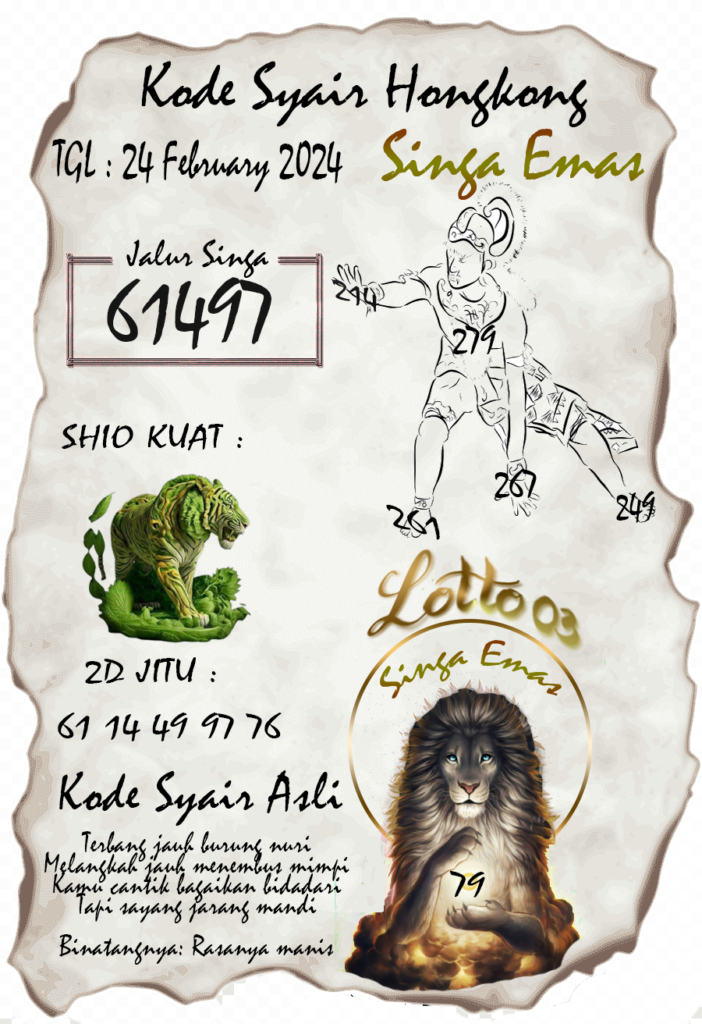 Kode Syair Hongkong
TGL : 24 February 2024
Singa Emas
Jalur Singa
61497
214
279
267
261
249
SHIO KUAT :
Lotto 03
Singa Emas
2D JITU :
61 14 49 97 76
Kode Syair Asli
Terbang jauh burung nuri
Melangkah jauh menembus mimpi
Kamu cantik bagaikan bidadari
Tapi sayang jarang mandi
Binatangnya: Rasanya manis
79